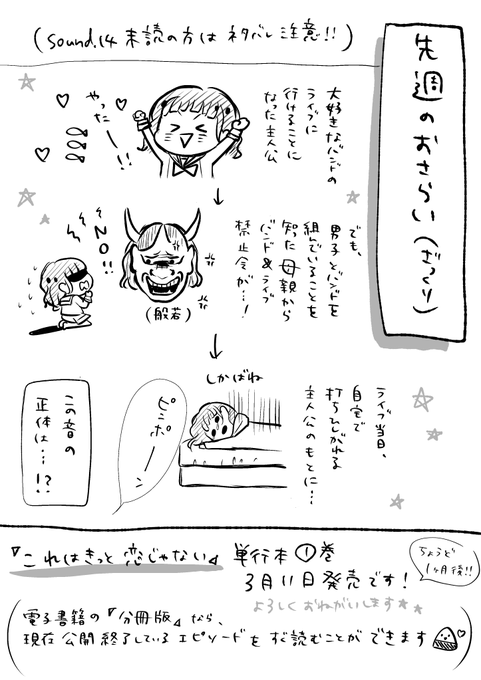 (sound.14 未読の方は ネタバレ注意!!)
先週のおさらい(ざっくり)
大好きなバンドの
ライブに
行けることに
なった主人公
やったー!!
でも、
男子とバンドを
組んでいることを
知った母親から
バンド&ライブ
禁止令が…!
NO!!
(般若)
ライブ当日、
自宅で
打ちひしがれる
主人公のもとに…
しかばね
ピンポーン
この音の
正体は…!?
『これはきっと恋じゃない』 単行本①巻
3月11日発売です!
ちょうど
1ヶ月後!!
よろしくおねがいします
電子書籍の『分冊版』なら、
現在公開終了しているエピソードをすぐ読むことができます